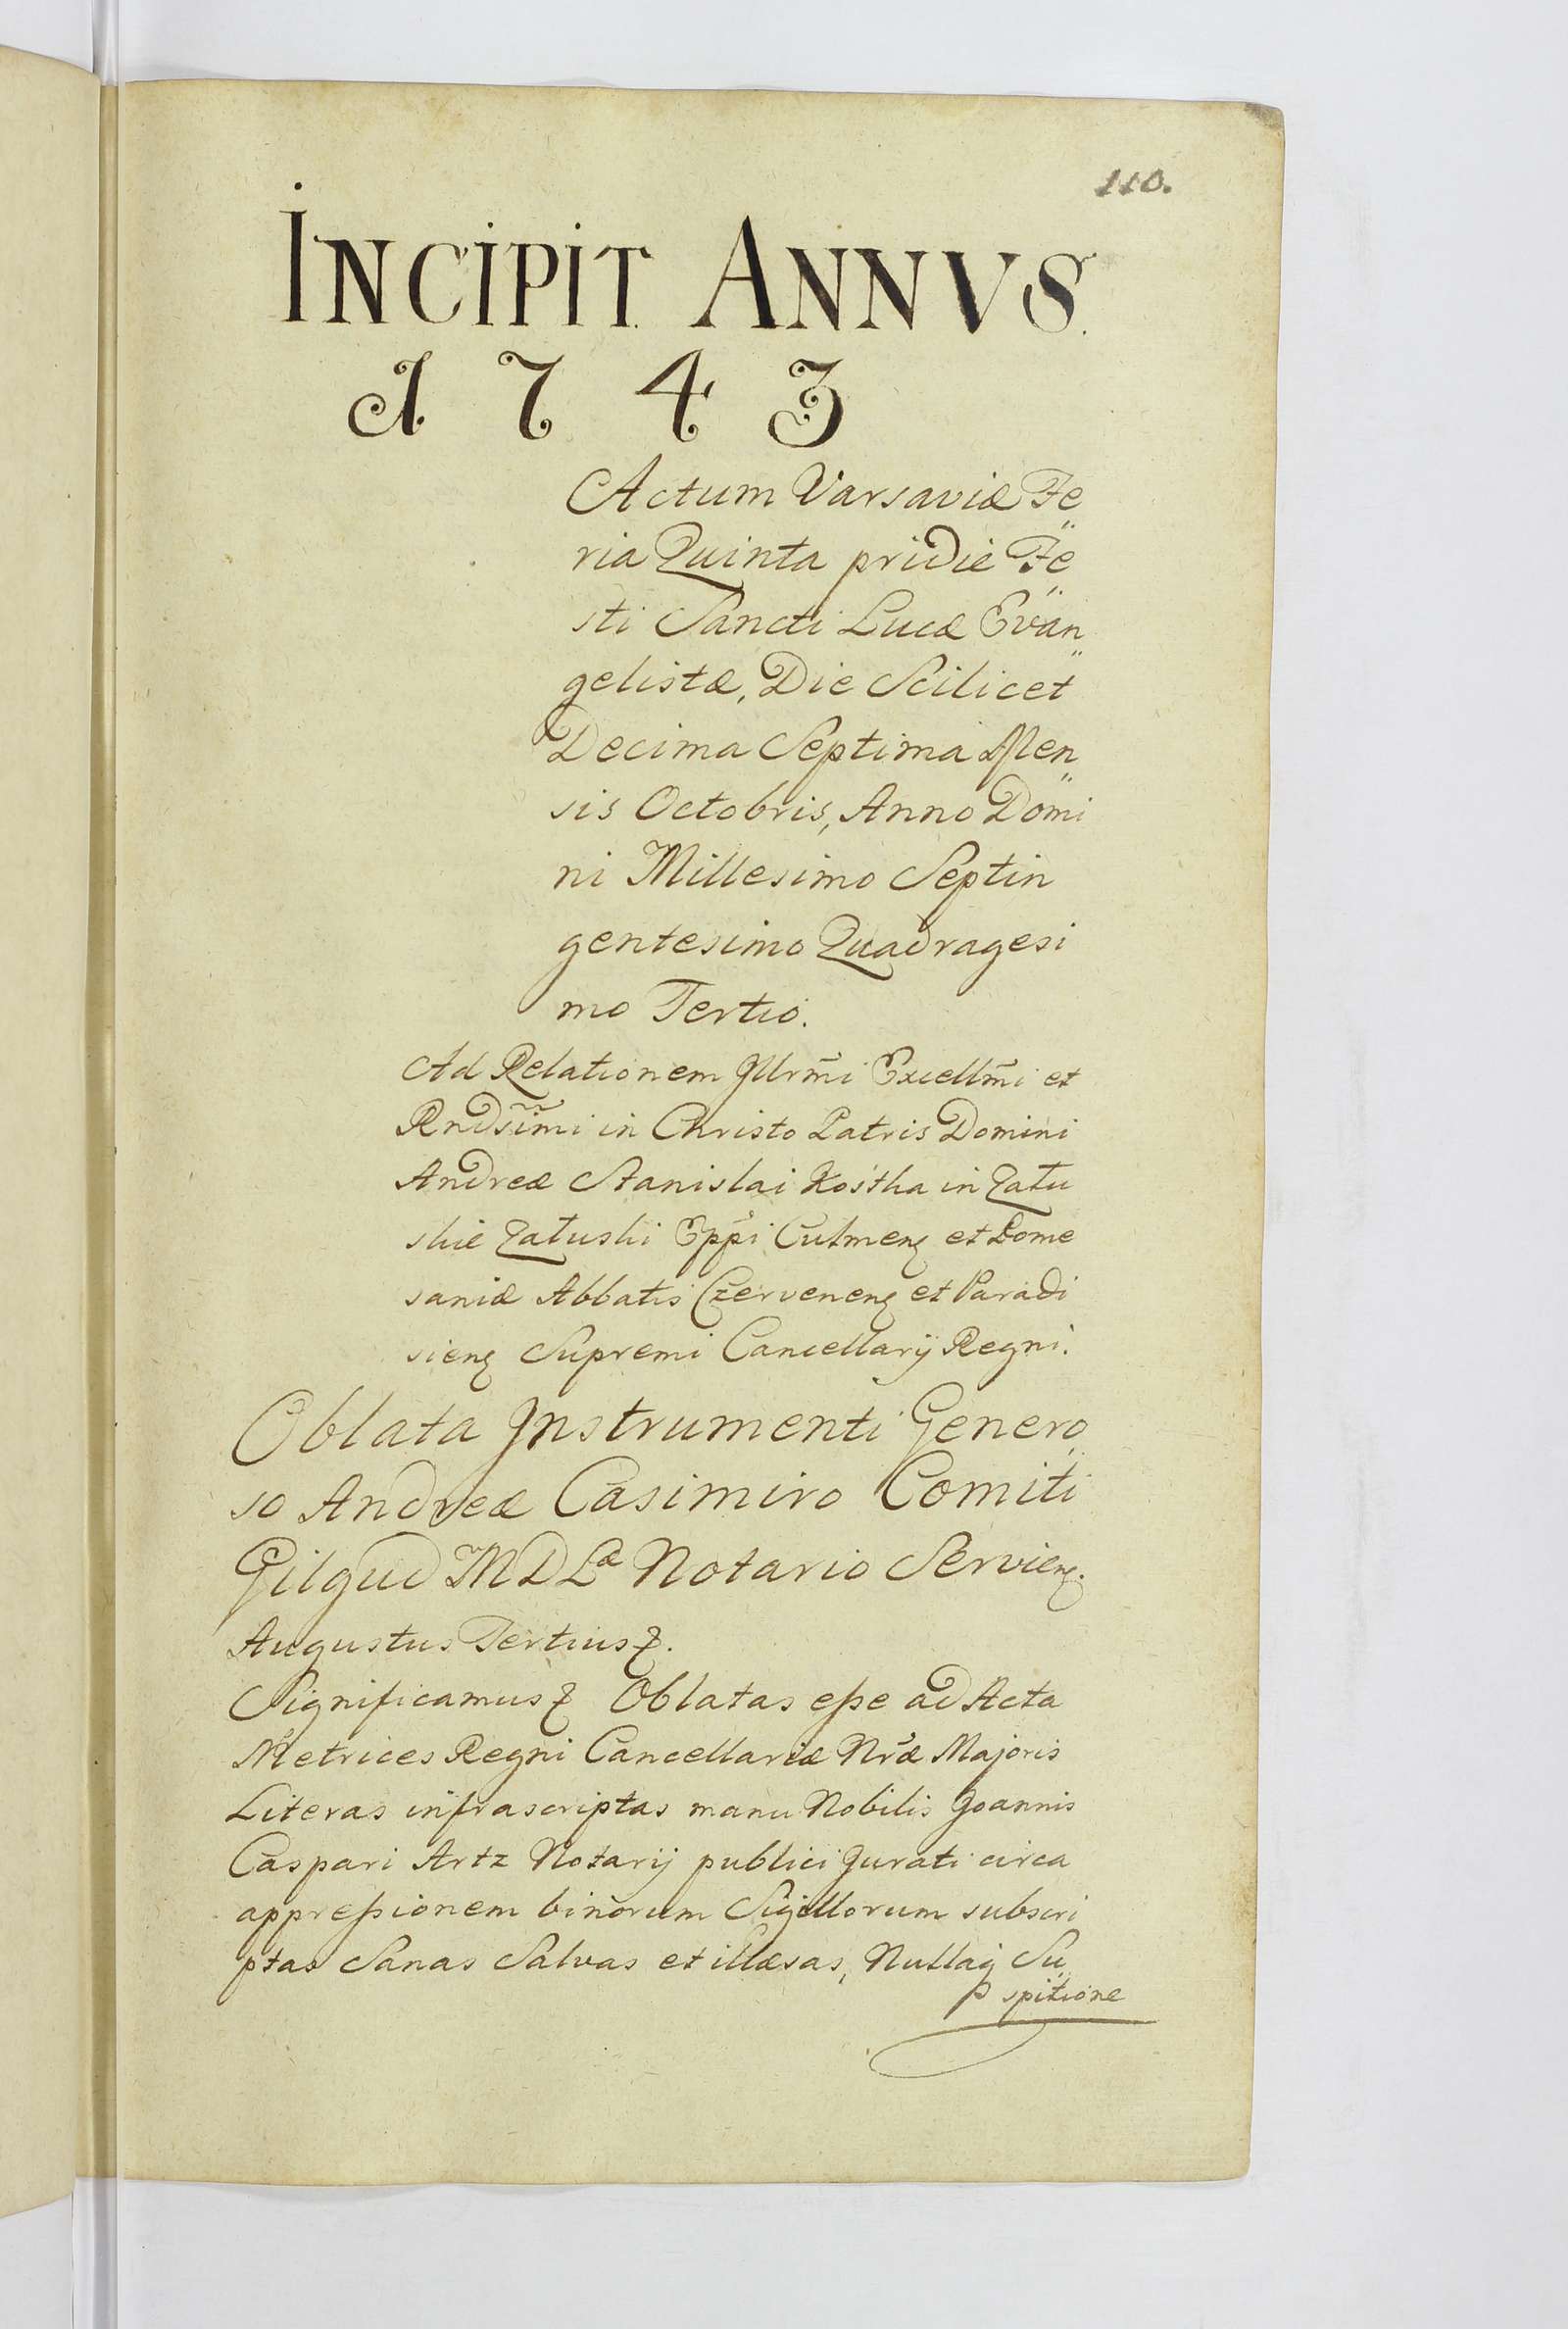 110.
INCIPIT ANNVS.
1743
Actum Varsaviæ Fe„
ria Quinta pridie Fe„
sti Sancti Lucæ Evan„
gelistæ, Die Scilicet
Decima Septima Men„
sis Octobris, Anno Domi
ni Millesimo Septin
gentesimo Quadragesi
mo Tertio.
Ad Relationem Illrm̃i Excellm̃i et
Rndsim̃i in Christo Patris Domini
Andreæ Stanislai Kostka in Zału
skie Załuski Epp̃i Culmenꝫ et Pome
saniæ Abbatis Czervenenꝫ et Paradi
sienꝫ Supremi Cancellarij Regni.
Oblata Instrumenti Genero„
so Andreæ Casimiro Comiti
Gilgud MDLæ Notario Servienꝫ.
Augustus Tertiusꝫ.
Significamusꝫ Oblatas eſse ad Acta
Metrices Regni Cancellariæ Nr̃æ Majoris
Literas infrascriptas manu Nobilis Joannis
Caspari Artz Notarij publici Jurati circa
appreſsionem binorum Sigillorum subscri
ptas Sanas Salvas et illæsas, Nullaq Su„
spitione